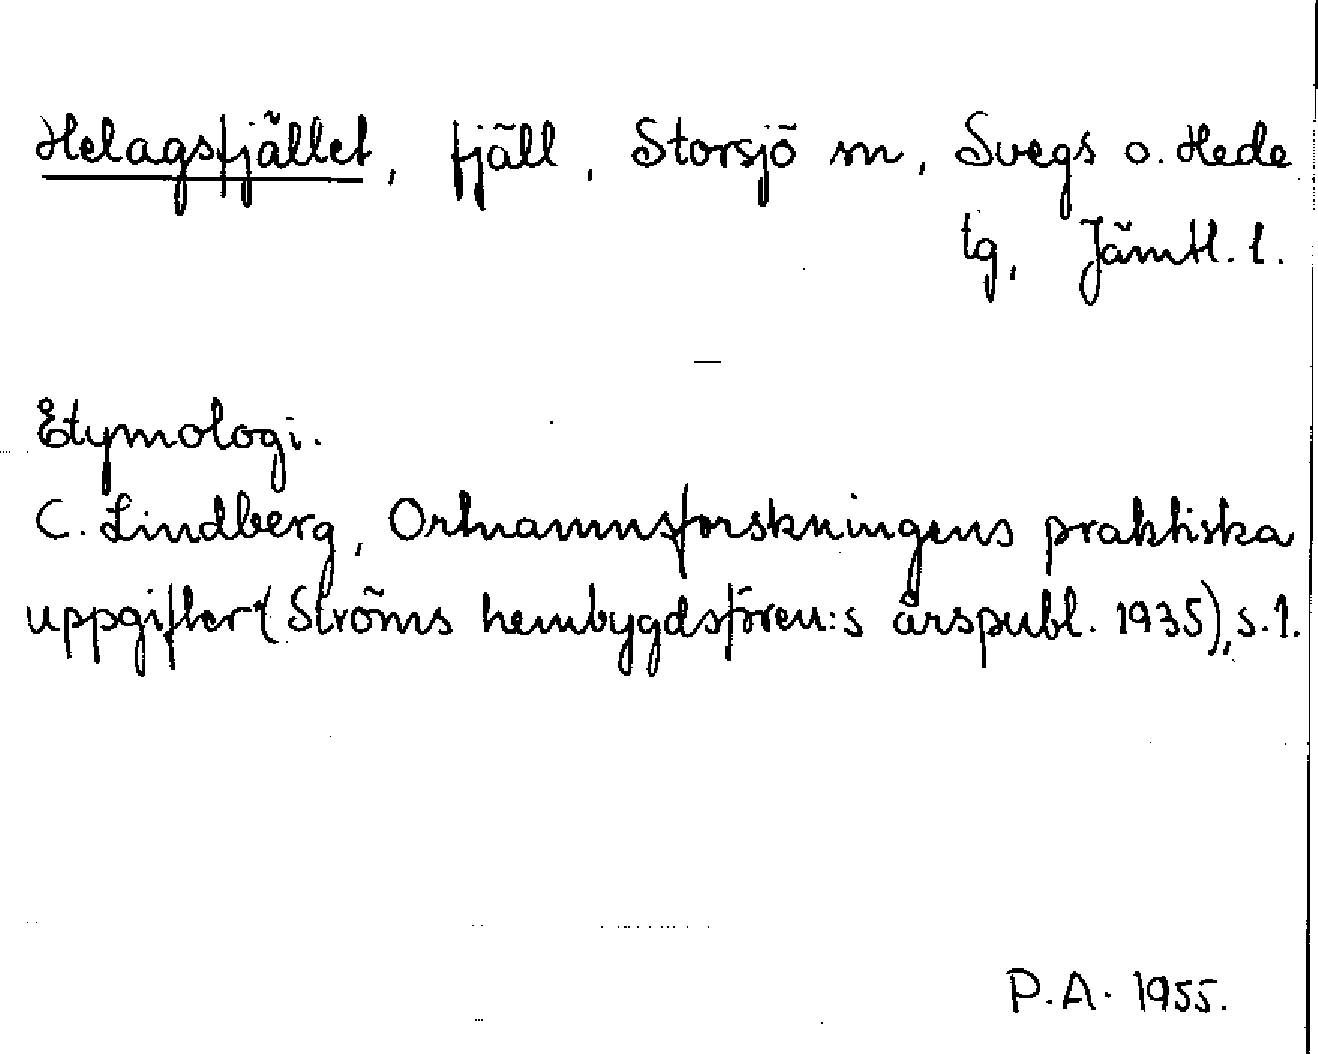 Helagsfjället, fjäll, Storsjö sn, Svegs o. Hede
tg, Jämtl. l.
—
Etymologi.
C. Lindberg, Ortnamnsforskningens praktiska
uppgifter (Ströms hembygdsfören:s årspubl. 1935), s. 1.
P.A. 1955.